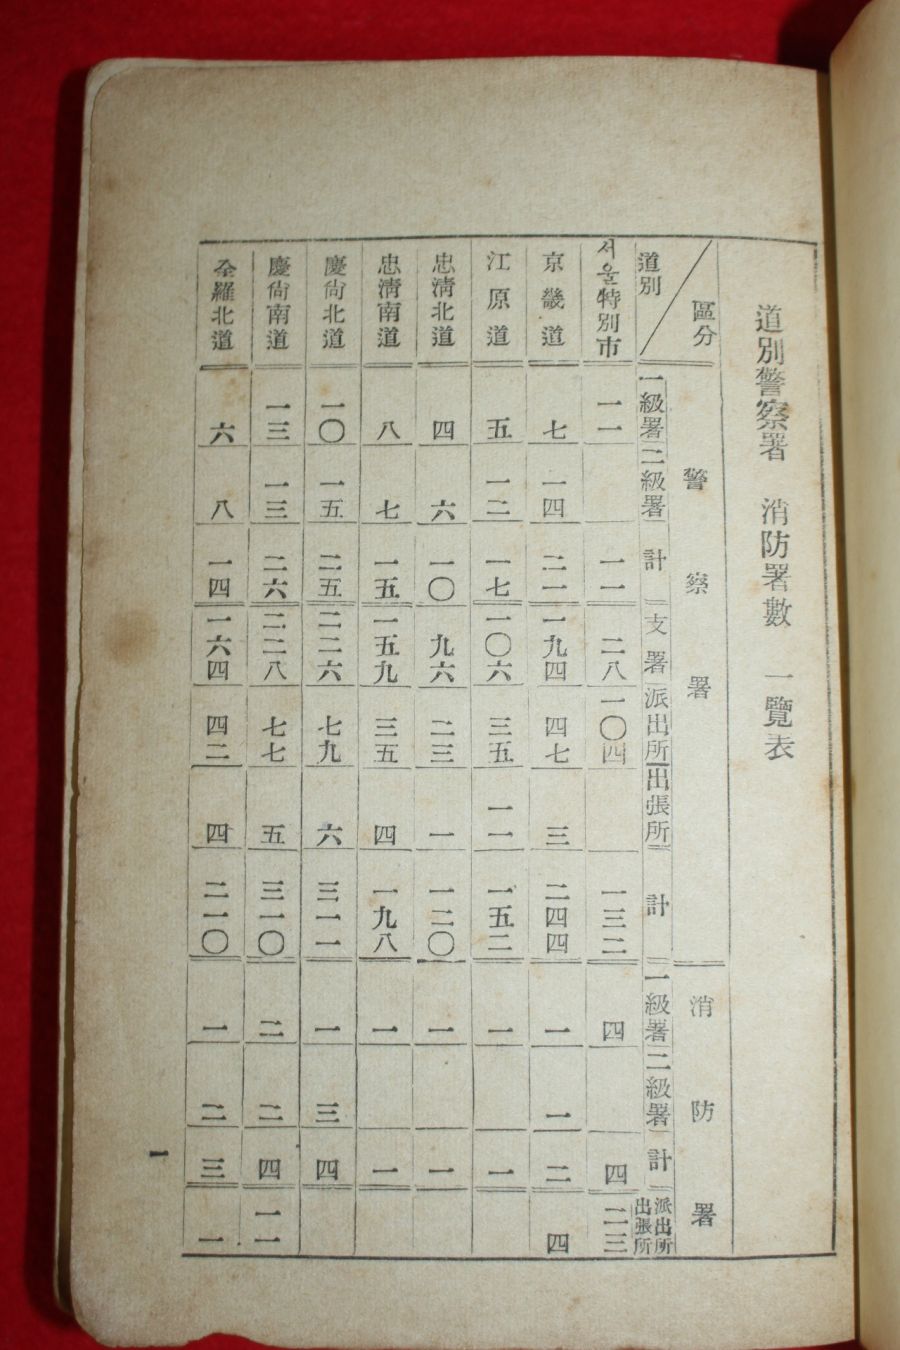 道別警察署 消防署數 一覽表
區分 警察署 消防署
道別 一級署 二級署 計 支署 派出所 出張所 計 一級署 二級署 計 派出所 出張所
서울特別市 一一 一一 二八 一〇四 一三二 四 四 二三
京畿道 七 一四 二一 一九四 四七 三 二四四 一 一 二 四
江原道 五 一二 一七 一〇六 三五 一一 一五二 一 一
忠淸北道 四 六 一〇 九六 二三 一 一二〇 一 一
忠淸南道 八 七 一五 一五九 三五 四 一九八 一 一
慶尙北道 一〇 一五 二五 二二六 七九 六 三一一 一 三 四
慶尙南道 一三 一三 二六 二二八 七七 五 三一〇 二 二 四 一一
全羅北道 六 八 一四 一六四 四二 四 二一〇 一 二 三 一
一